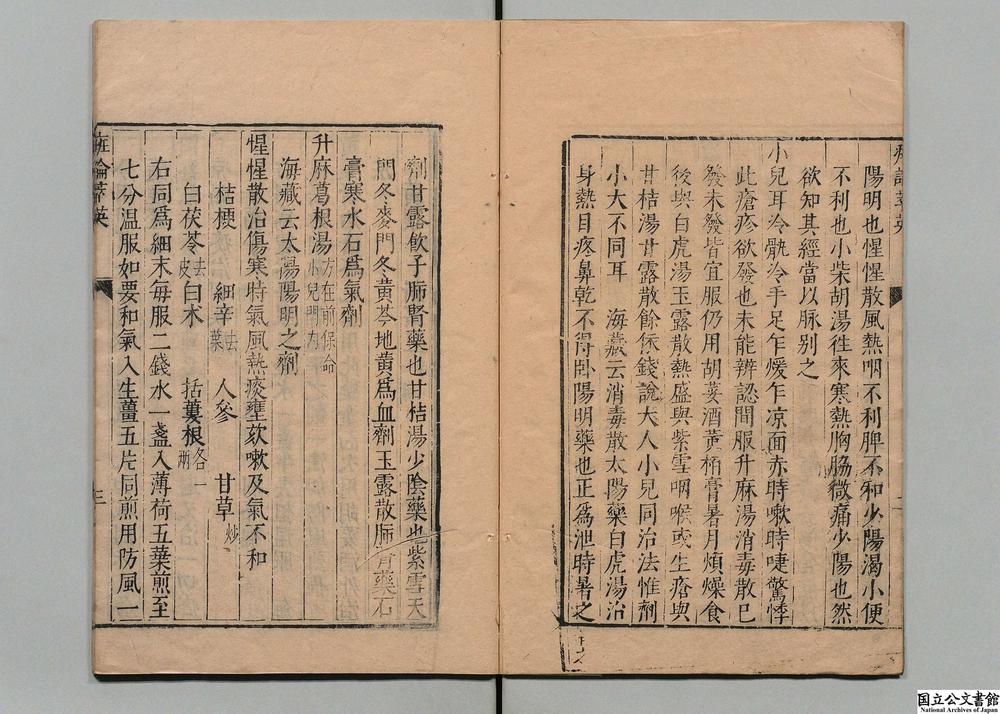 陽明也惺惺散風熱咽不利脾不和少陽渴小便
不利也小柴胡湯往來寒熱胸脇微痛少陽也然
欲知其經當以脉别之
小兒耳冷骩冷手足乍煖乍凉面赤時嗽時㖷驚悸
此瘡疹欲發也未能辨認間服升麻湯消毒散已
發未發皆宜服仍用胡荽酒黄栢膏暑月煩燥食
後與白虎湯玉露散熱盛與紫雪咽喉或生瘡與
甘桔湯甘露散餘依錢說大人小兒同治法惟劑
小大不同耳 海藏云消毒散太陽藥白虎湯治
身熱目疼鼻乾不得卧陽明藥也正爲泄時暑之
劑甘露飲子肺腎藥也甘桔湯少陰藥也紫雪天
門冬麥門冬黄芩地黄爲血劑玉露散肺腎藥石
膏寒水石爲氣劑
升麻葛根湯方在前保命小兒門内
海藏云太陽陽明之劑
惺惺散治傷寒時氣風熱痰壅欬嗽及氣不和
桔梗 細辛去葉 人參 甘草炒
白茯苓去皮 白朮 括蔞根各一兩
右同爲細末每服二錢水一盞入薄荷五葉煎至
七分温服如要和氣入生薑五片同煎用防風一
斑論萃英
三
国立公文書館
National Archives of Japan